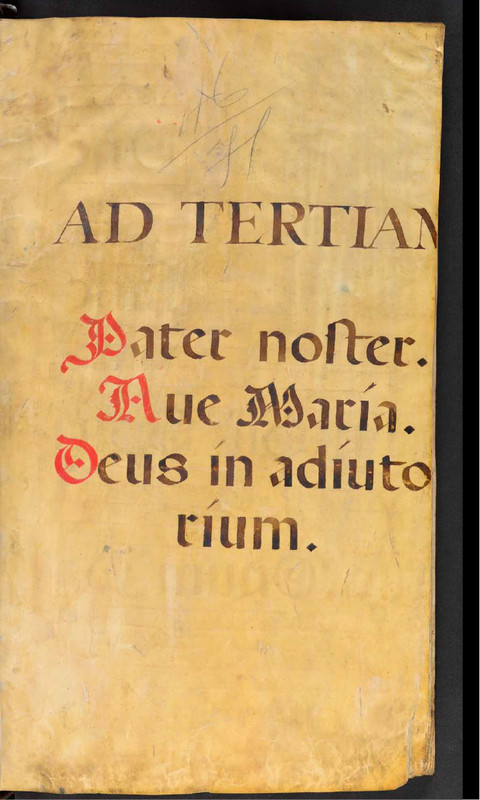 AD TERTIAM
Pater noſter.
Aue Maria.
Deus in adiuto
rium.